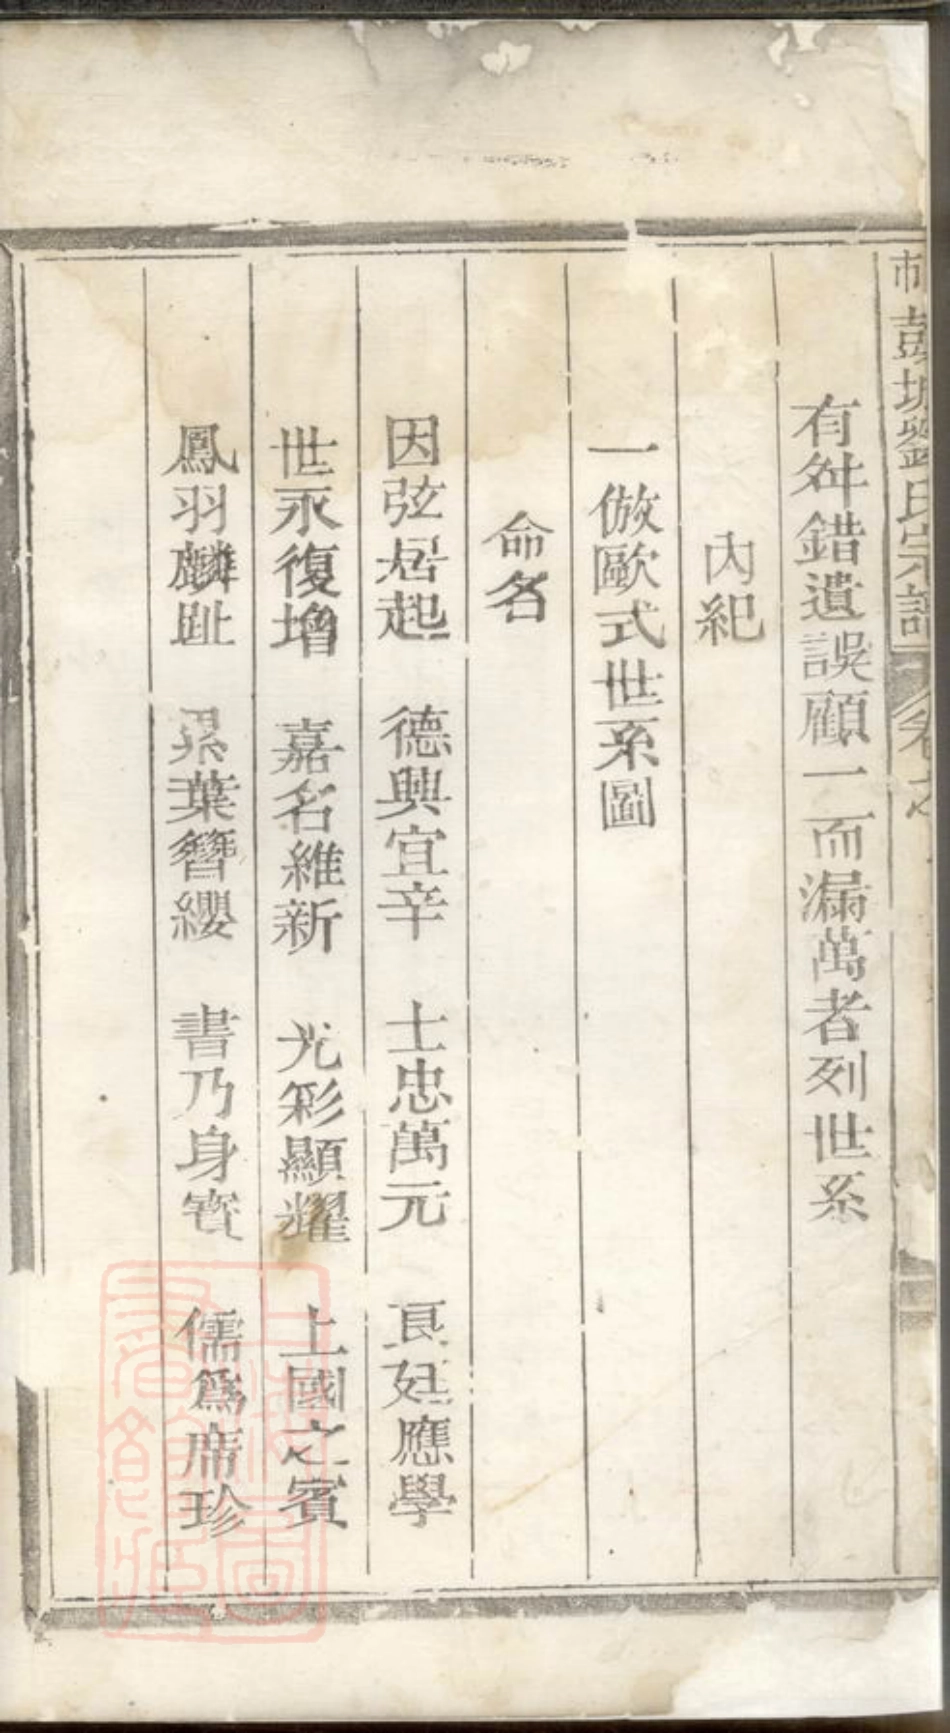 彭城劉氏宗譜 卷之
有舛錯遺誤顧一而漏萬者列世系
內紀
一倣歐式世系圖
命名
因弦居起 德興宜辛 士忠萬元 良廷應學
世永復增 嘉名維新 光彩顯耀 上國之賓
鳳羽麟趾 累葉簪纓 書乃身寶 儒爲席珍